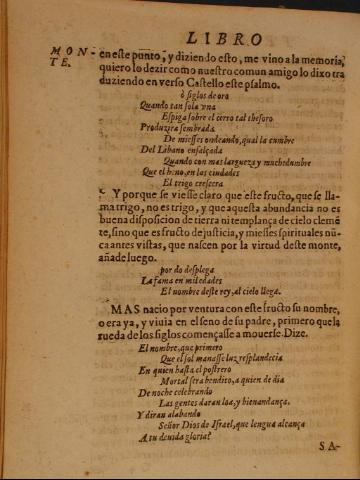 LIBRO
MON-
TE.
en este punto, y diziendo esto, me vino a la memoria,
quiero lo dezir como nuestro comun amigo lo dixo tra
duziendo en verso Castello este psalmo.
ò siglos de oro
Quando tan sola vna
Espiga sobre el cerro tal thesoro
Produzira sembrada
De miesses ondeando, qual la cumbre
Del Libano ensalçada
Quando con mas largueza y muchedumbre
Que el heno, en las ciudades
El trigo crescera
Y porque se viesse claro que este fructo, que se lla-
ma trigo, no es trigo, y que aquesta abundancia no es
buena disposicion de tierra ni templança de cielo clemẽ
te, sino que es fructo de justicia, y miesses spirituales nũ-
ca antes vistas, que nascen por la virtud deste monte,
añade luego.
por do desplega
La fama en mil edades
El nombre deste rey, al cielo llega.
MAS nacio por ventura con este fructo su nombre,
o era ya, y viuia en el seno de su padre, primero que la
rueda de los siglos començasse a mouerse. Dize.
El nombre, que primero
Que el sol manasse luz resplandecia
En quien hasta el postrero
Mortal sera bendito, a quien de dia
De noche celebrando
Las gentes daran loa, y bienandança.
Y diran alabando
Señor Dios de Israel, que lengua alcança
A tu deuida gloria?
SA-